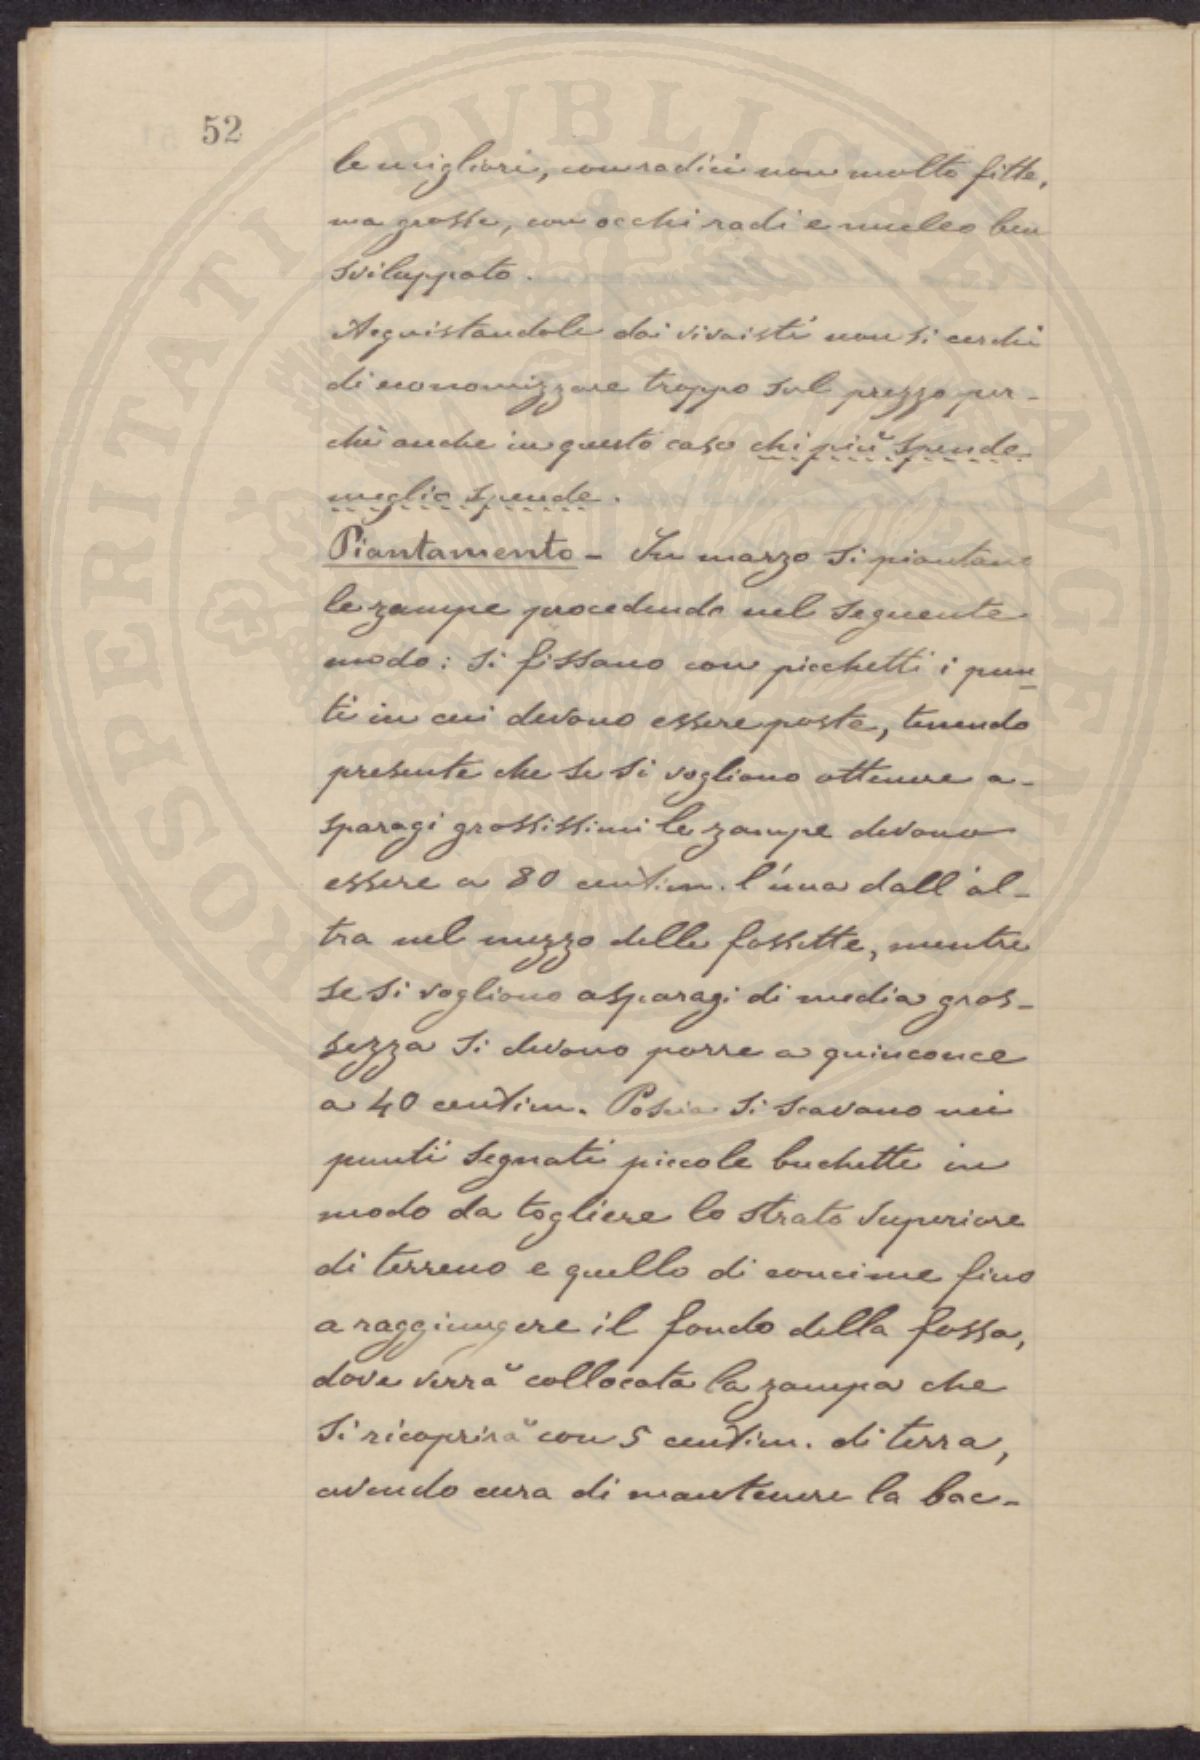 52
le migliori, con radici non molto fitte,
ma grosse, con occhi radi e nucleo ben
sviluppato.
Acquistandole dai vivaisti non si cerchi
di economizzare troppo sul prezzo per-
chè anche in questo caso chi più spende
meglio spende.
Piantamento - In marzo si piantano
le zampe procedendo nel seguente
modo: si fissano con picchetti i pun-
ti in cui devono essere poste, tenendo
presente che se si vogliono ottenere a-
sparagi grossissimi le zampe devono
essere a 80 centim. l'una dall'al-
tra nel mezzo delle fossette, mentre
se si vogliono asparagi di media gros-
sezza si devono porre a quinconce
a 40 centim. Poscia si scavano nei
punti segnati piccole buchette in
modo da togliere lo strato superiore
di terreno e quello di concime fino
a raggiungere il fondo della fossa,
dove verrà collocata la zampa che
si ricoprirà con 5 centim. di terra,
avendo cura di mantenere la bac-
PROSPERITATI PUBLICAE AVGENDAE